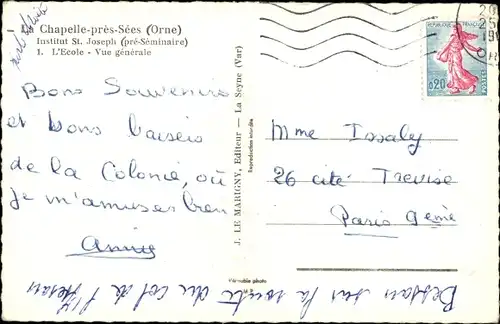 Chapelle-près-Sées (Orne)
Institut St. Joseph (pré-Séminaire)
1. L'Ecole - Vue générale
Bons Souvenirs
et bons baisers
de la Colonie, où
je m'amuse bien
Annie
J. LE MARIGNY, Editeur — La Seyne (Var)
Reproduction interdite
Véritable photo
REPUBLIQUE FRANÇAISE
0,20
POSTES
Mme Issaly
26 cité Trévise
Paris 9ème
sur la route du col de l'